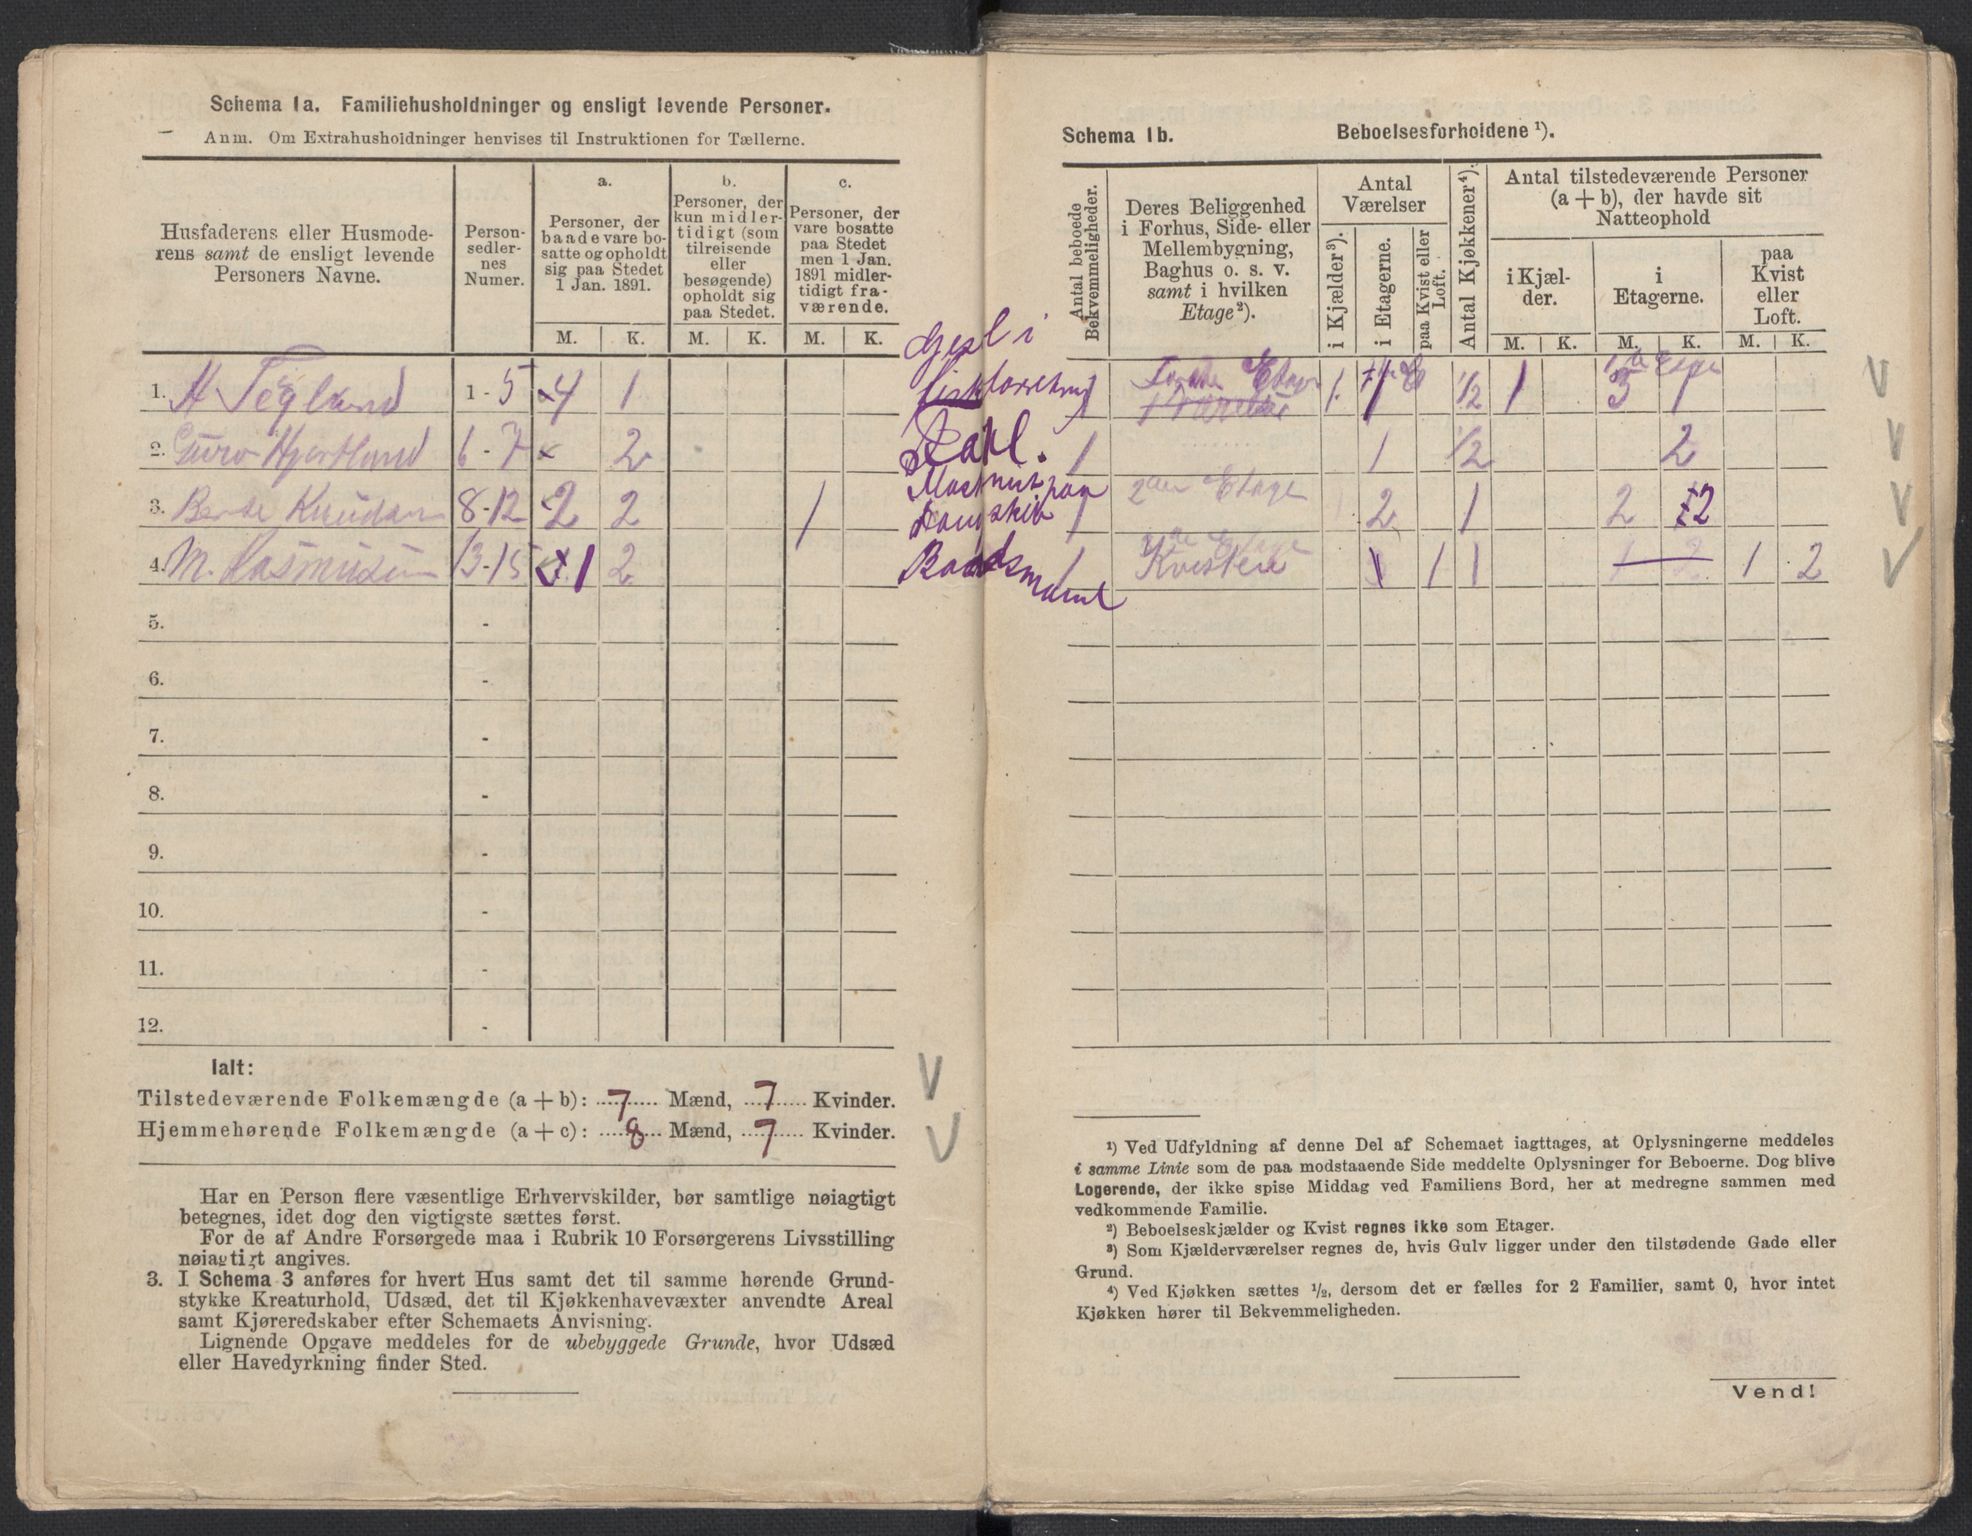 Schema 1a. Familiehusholdninger og ensligt levende Personer.
Anm. Om Extrahusholdninger henvises til Instruktionen for Tællerne.
Husfaderens eller Husmoderens samt de ensligt levende Personers Navne.
Personsedlernes Numer.
a.
Personer, der baade vare bosatte og opholdt sig paa Stedet 1 Jan. 1891.
b.
Personer, der kun midlertidigt (som tilreisende eller besøgende) opholdt sig paa Stedet.
c.
Personer, der vare bosatte paa Stedet men 1 Jan. 1891 midlertidigt fraværende.
M. K. M. K. M. K.
1. H Tegland 1 - 5 4 1
2. Guro Hjortland 6 - 7 2
3. Bende Knudsen 8 - 12 2 2 1
4. M. Rasmussen 13 - 15 1 2
5. -
6. -
7. -
8. -
9. -
10. -
11. -
12. -
Ialt:
Tilstedeværende Folkemængde (a + b): 7 Mænd, 7 Kvinder.
Hjemmehørende Folkemængde (a + c): 8 Mænd, 7 Kvinder.
Har en Person flere væsentlige Erhvervskilder, bør samtlige nøiagtigt
betegnes, idet dog den vigtigste sættes først.
For de af Andre Forsørgede maa i Rubrik 10 Forsørgerens Livsstilling
nøiagtigt angives.
3. I Schema 3 anføres for hvert Hus samt det til samme hørende Grund-
stykke Kreaturhold, Udsæd, det til Kjøkkenhavevæxter anvendte Areal
samt Kjøreredskaber efter Schemaets Anvisning.
Lignende Opgave meddeles for de ubebyggede Grunde, hvor Udsæd
eller Havedyrkning finder Sted.
Schema 1b. Beboelsesforholdene ¹).
Antal beboede Bekvemmeligheder.
Deres Beliggenhed i Forhus, Side- eller Mellembygning, Baghus o. s. v. samt i hvilken Etage ²).
Antal Værelser
i Kjælder ³).
i Etagerne.
paa Kvist eller Loft.
Antal Kjøkkener ⁴).
Antal tilstedeværende Personer (a + b), der havde sit Natteophold
i Kjælder.
i Etagerne.
paa Kvist eller Loft.
M. K. M. K. M. K.
Gesl i
1 Etage 1 1 1/2 1 3 1
1 1 1/2 2
Maskinist paa
1 2den Etage 2 1 2 2
Baadsmand
1 Kvisten 1 1 1 2
¹) Ved Udfyldning af denne Del af Schemaet iagttages, at Oplysningerne meddeles
i samme Linie som de paa modstaaende Side meddelte Oplysninger for Beboerne. Dog blive
Logerende, der ikke spise Middag ved Familiens Bord, her at medregne sammen med
vedkommende Familie.
²) Beboelseskjælder og Kvist regnes ikke som Etager.
³) Som Kjælderværelser regnes de, hvis Gulv ligger under den tilstødende Gade eller
Grund.
⁴) Ved Kjøkken sættes ½, dersom det er fælles for 2 Familier, samt 0, hvor intet
Kjøkken hører til Bekvemmeligheden.
Vend!